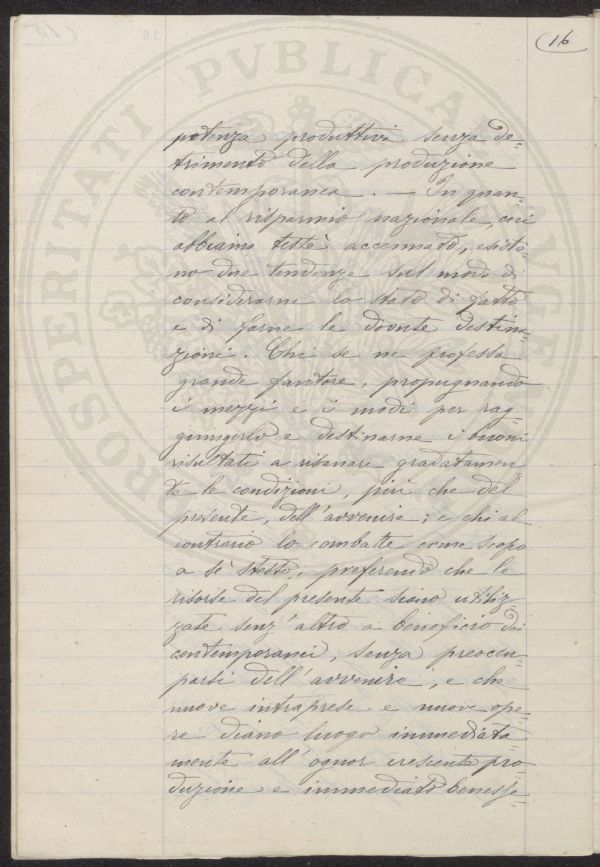 16
potenza produttivi senza de=
trimento della produzione
contemporanea. — In quan=
to al risparmio nazionale, cui
abbiamo testè accennato, esisto=
no due tendenze sul modo di
considerarne lo stato di fatto
e di farne le dovute destina=
zioni. Chi se ne professa
grande fautore, propugnando
i mezzi e i modi per rag=
giungerlo e destinarne i buoni
risultati a risanare gradatamen
te le condizioni, più che del
presente, dell'avvenire; e chi al
contrario lo combatte come scopo
a sè stesso, preferendo che le
risorse del presente siano utiliz=
zate senz'altro a beneficio dei
contemporanei, senza preoccu=
parsi dell'avvenire, e che
nuove intraprese e nuove ope=
re diano luogo immediata=
mente all'ognor crescente pro=
duzione e immediato benesse=
PROSPERITATI PVBLICAE AVGENDAE